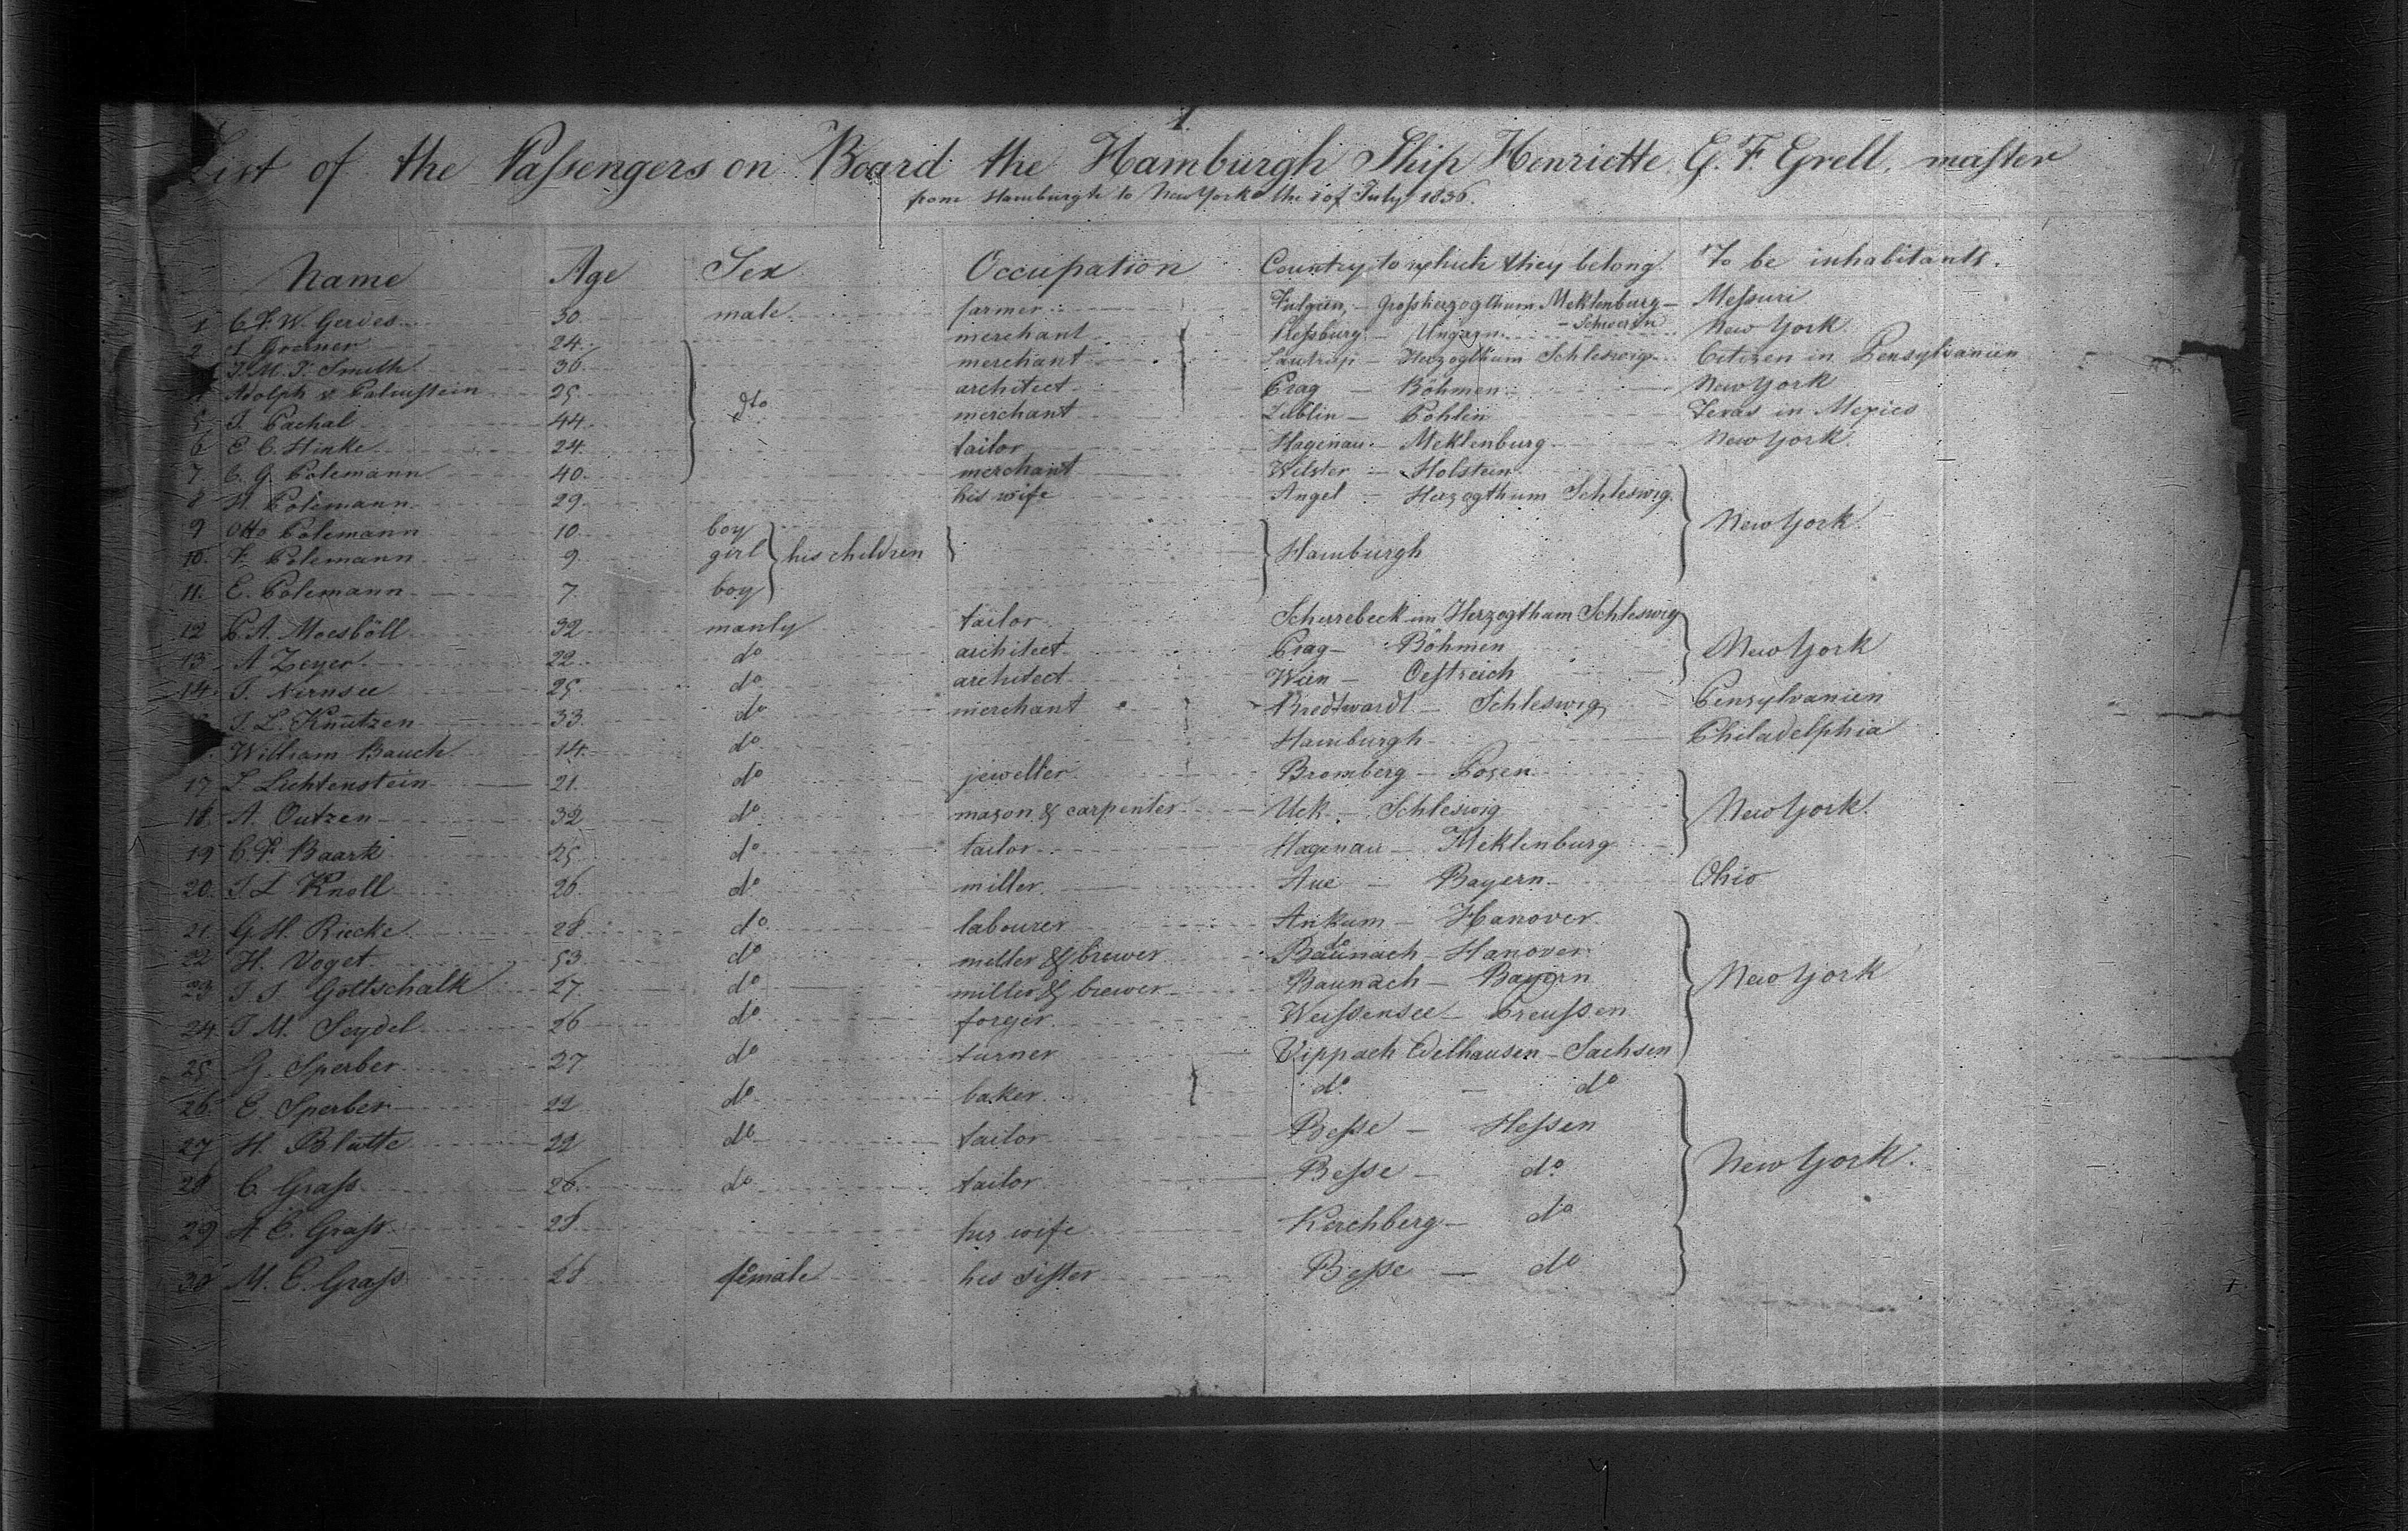 1
List of the Passengers on Board the Hamburgh Ship Henriette G. F. Grell, master
from Hamburgh to New York the 1 of July 1836.
Name Age Sex Occupation Country to which they belong To be inhabitants.
1 C. F. W. Gerdes 30 male farmer Großherzogthum Meklenburg- Messuri
-Schwerin
2 Groener 24 merchant Pressburg - Ungarn New York
J. M. J. Smith 36 merchant - Herzogthum Schleswig Citizen in Pensylvanien
4 Adolph v. 25 dto architect Prag - Böhmen New York
5 J. Pachal 44 merchant Lublin - Pohlen Texas in Mexico
6 E. C. Hinke 24 tailor Hagenau - Meklenburg New York
7 C. G. Polemann 40 merchant Wilster - Holstein
8 H. Polemann 29 his wife Angel - Herzogthum Schleswig
9 Otto Polemann 10 boy
10 F. Polemann 9 girl his children Hamburgh New York
11. E. Polemann 7 boy
12 P. A. Moesböll 32 manly tailor Scherrebeck im Herzogtham Schleswig
13 A Zeyer 22 do architect Prag - Böhmen New York
14. J. Nernsee 25 do architect Wien - Oestreich
J. L. Knutzen 33 do merchant Bredtwardt - Schleswig Pensylvanien
William Bauch 14 do Hamburgh Philadelphia
17 L. Lichtenstein 21. do jeweller Bromberg - Posen
18. A. Outzen 32 do mason & carpenter Uck - Schleswig New York.
19 C. F. Baark 25 do tailor Hagenau - Meklenburg
20. J. L. Knoll 26 do miller Aue - Bayern Ohio
21. G. H. Riecke 28 do labourer Ankum - Hanover
22 H. Voget 53 do miller & brewer Baunach do - Hanover
23 J. J. Gottschalk 27 do miller & brewer Baunach - Bayern New York
24 J. M. Seydel 26 do forger Weissensee - Preussen
25 G. Sperber 27 do turner Vippach Edelhausen - Sachsen
26. E. Sperber 22 do baker do - do
27 H. Blutte 22 do tailor Besse - Hessen
28 C. Grass 26 do tailor Besse - do New York.
29 A. E. Grass 28 his wife Kerchberg - do
30 M. E. Grass 28 female his sister Besse - do